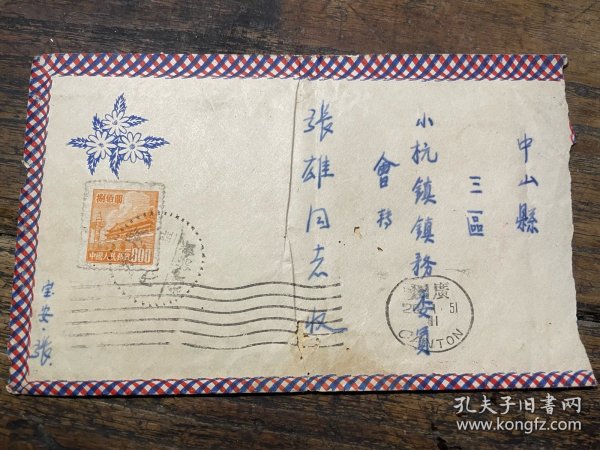 中山縣
三區
小杭鎮鎮務委員
會轉
張雄同志收
宝安·張
捌佰圓
中國人民郵政
800
廣州
51
11
CANTON
孔夫子旧書网
www.kongfz.com